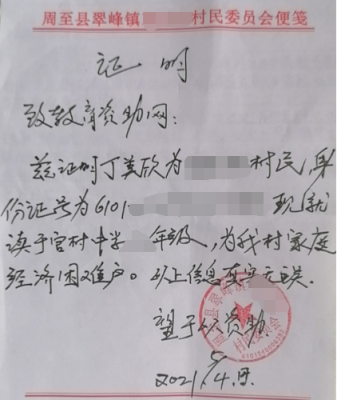 周至县翠峰镇 村民委员会便笺
证明
致教育资助网：
兹证明丁美欣为 村民，身
份证号为6101 现就
读于官村中学 年级，为我村家庭
经济困难户。以上信息真实无误。
望予以资助。
周至县翠峰镇
村民委员会
2021.4.